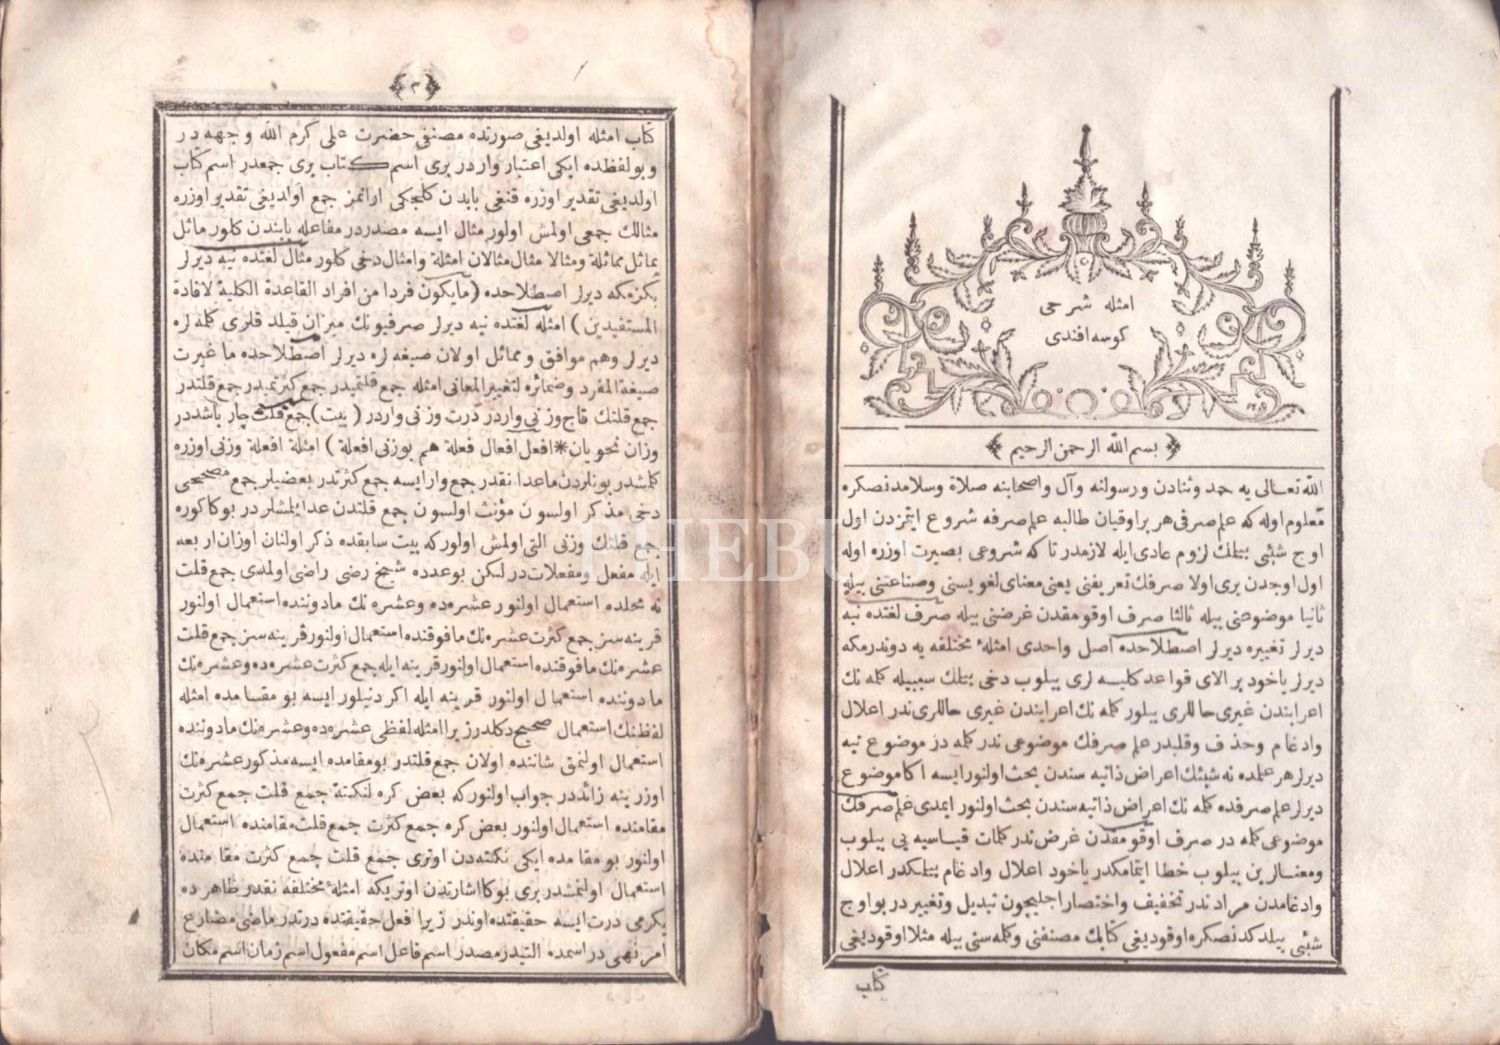 امثله شرحی
کوسه افندی
بسم الله الرحمن الرحیم
الله تعالی یه حمد وثنادن ورسولنه وآل واصحابنه صلاة وسلامدنصکره
معلوم اوله که علم صرفی هر براوقیان طالبه علم صرفه شروع ایتمزدن اول
اوج شیئی بیلمك لزوم عادی ایله لازمدر تاکه شروعی بصیرت اوزره اوله
اول اوجدن بری اولا صرفك تعریفنی یعنی معنای لغویسنی وصناعتنی بیله
ثانیا موضوعنی بیله ثالثا صرف اوقومقدن غرضنی بیله صرف لغتده نیه
دیرلر تغییره دیرلر اصطلاحده اصل واحدی امثلهٔ مختلفه یه دوندرمکه
دیرلر یاخود بر الای قواعد کلیه لری بیلوب دخی بیلمك سببیله کلمه نك
اعرابندن غیری حاللری بیلور کلمه نك اعرابندن غیری حاللری ندر اعلال
وادغام وحذف وقلبدر علم صرفك موضوعی ندر کلمه در موضوع نیه
دیرلر هر علمده نه شیئك اعراض ذاتیه سندن بحث اولنور ایسه اکا موضوع
دیرلر علم صرفده کلمه نك اعراض ذاتیه سندن بحث اولنور ایمدی علم صرفك
موضوعی کلمه در صرف اوقومقدن غرض ندر کلمات قیاسیه یی بیلوب
ومعنالرین بیلوب خطا ایتمامکدر یاخود اعلال وادغام بیلمکدر اعلال
وادغامدن مراد ندر تخفیف واختصار اجلیچون تبدیل وتغییر در بو اوج
شیئی بیلدکدنصکره اوقودیغی کتابك مصنفنی وکلمه سنی بیله مثلا اوقودیغی
کتاب
٣
کتاب امثله اولدیغی صورتده مصنفی حضرت علی کرم الله وجهه در
وبولفظده ایکی اعتبار واردر بری اسم کتاب بری جمعدر اسم کتاب
اولدیغی تقدیر اوزره قنغی بابدن کلجکی ارانمز جمع اولدیغی تقدیر اوزره
مثالك جمعی اولمش اولور مثال ایسه مصدردر مفاعله بابندن کلور ماثل
یماثل مماثلة ومثالا مثال مثالان امثلة وامثال دخی کلور مثال لغتده نیه دیرلر
بکزمکه دیرلر اصطلاحده (مایکون فردا من افراد القاعدة الکلیة لافادة
المستفیدین) امثله لغتده نیه دیرلر صرفیونك میزان قیلدقلری کلمه لره
دیرلر وهم موافق ومماثل اولان صیغه لره دیرلر اصطلاحده ما غیرت
صیغة المفرد وضمائره لتغییر المعانی امثله جمع قلتمیدر جمع کثرتمیدر جمع قلتدر
جمع قلتك قاج وزنی واردر درت وزنی واردر (بیت) جمع قلت چار باشددر
وزان نحویان * افعل افعال فعلة هم بوزنی افعلة) امثلة افعلة وزنی اوزره
کلمشدر بونلردن ماعدا نقدر جمع وارایسه جمع کثرتدر بعضیلر جمع مصححی
دخی مذکر اولسون مؤنث اولسون جمع قلتدن عد ایلمشلردر بوکا کوره
جمع قلتك وزنی التی اولمش اولور که بیت سابقده ذکر اولنان اوزان اربعه
ایله مفعل ومفعلات در لکن بو عدده شیخ رضی راضی اولمدی جمع قلت
نه محلده استعمال اولنور عشره ده وعشره نك مادوننده استعمال اولنور
قرینه سز جمع کثرت عشره نك مافوقنده استعمال اولنور قرینه سز جمع قلت
عشره نك مافوقنده استعمال اولنور قرینه ایله جمع کثرت عشره ده وعشره نك
مادوننده استعمال اولنور قرینه ایله اکر دنیلور ایسه بو مقامده امثله
لفظنك استعمال صحیح دکلدر زیرا امثله لفظی عشره ده وعشره نك مادوننده
استعمال اولنمق شاننده اولان جمع قلتدر بومقامده ایسه مذکور عشره نك
اوزرینه زائددر جواب اولنور که بعض کره لنکتة جمع قلت جمع کثرت
مقامنده استعمال اولنور بعض کره جمع کثرت جمع قلت مقامنده استعمال
اولنور بو مقامده ایکی نکته دن اوتری جمع قلت جمع کثرت مقامنده
استعمال اولنمشدر بری بوکا اشارتدن اوتریکه امثلهٔ مختلفه نقدر ظاهرده
یکرمی درت ایسه حقیقتده اوندر زیرا فعل حقیقتده درتدر ماضی مضارع
امر نهی در اسمده التیدر مصدر اسم فاعل اسم مفعول اسم زمان اسم مکان